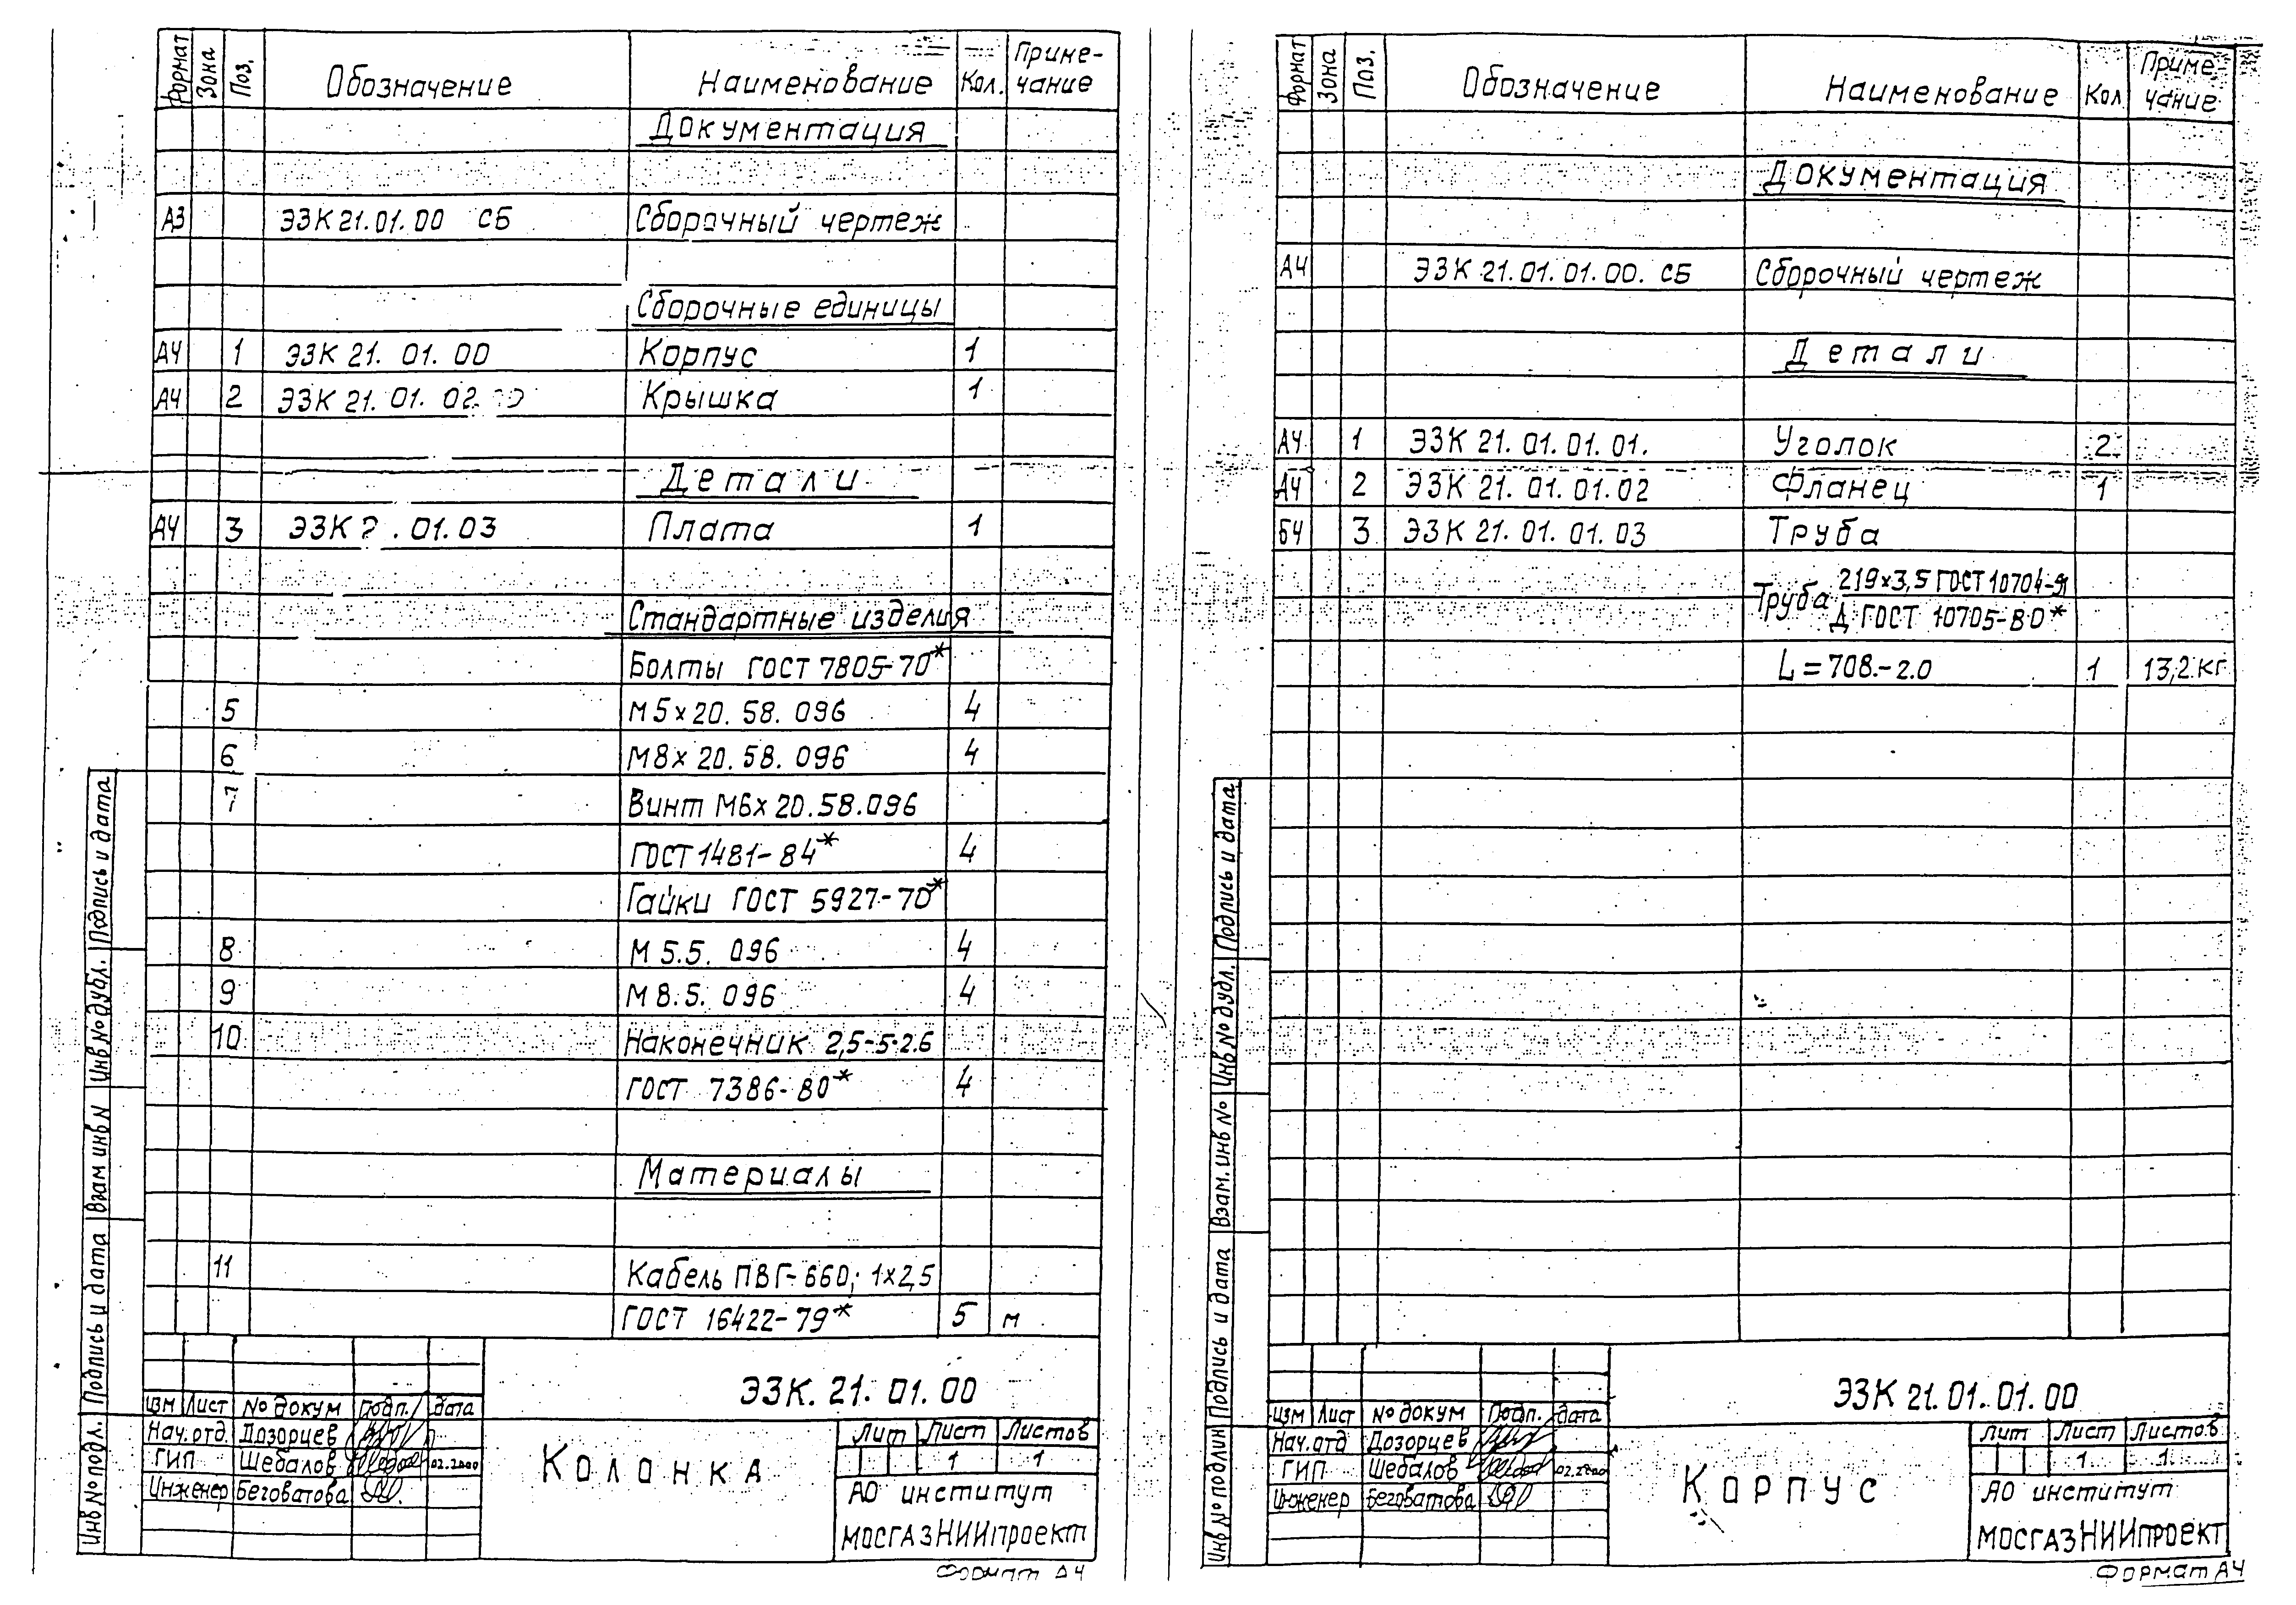 Формат Зона Поз. Обозначение Наименование Кол. Приме-
чание
Документация
А3 ЭЗК 21.01.00 СБ Сборочный чертеж
Сборочные единицы
А4 1 ЭЗК 21. 01. 00 Корпус 1
А4 2 ЭЗК 21. 01. 02. Крышка 1
Детали
А4 3 .01.03 Плата 1
Стандартные изделия
Болты ГОСТ 7805-70*
5 М5х20. 58. 096 4
6 М8х20. 58. 096 4
7 Винт М6х20.58.096
ГОСТ 1481-84* 4
Гайки ГОСТ 5927-70*
8 М 5.5. 096 4
9 М 8.5. 096 4
10 Наконечник 2,5-5-2.6
ГОСТ 7386-80* 4
Материалы
11 Кабель ПВГ-660; 1х2,5
ГОСТ 16422-79* 5 м
Инв № подл. Подпись и дата Взам инв N Инв № дубл. Подпись и дата
ЭЗК. 21. 01. 00
Изм Лист № докум Подп. дата
Нач. отд. Дозорцев
ГИП Шебалов 02.2000
Инженер Беговатова
Колонка
Лит Лист Листов
1 1
АО институт
МОСГАЗНИИпроект
Формат А4
Формат Зона Поз. Обозначение Наименование Кол Приме-
чание
Документация
А4 ЭЗК 21.01.01.00. СБ Сборочный чертеж
Детали
А4 1 ЭЗК 21. 01. 01. 01. Уголок 2
А4 2 ЭЗК 21. 01. 01. 02 Фланец 1
БЧ 3 ЭЗК 21. 01. 01. 03 Труба
Труба 219х3,5 ГОСТ 10704-91
Д ГОСТ 10705-80*
L = 708.-2.0 1 13,2 кг
Инв № подлин Подпись и дата Взам. инв № Инв № дубл. Подпись и дата
ЭЗК 21.01.01.00
Изм Лист № докум Подп. дата
Нач. отд Дозорцев
ГИП Шебалов 02.2000
Инженер Беговатова
Корпус
Лит Лист Листов
1 1
АО институт
МОСГАЗНИИпроект
Формат А4